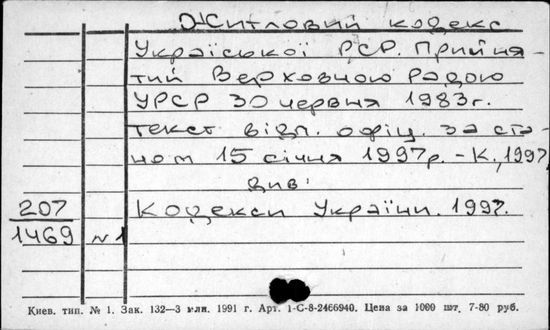 Житловий кодекс
Української РСР. Прийня-
тий Верховною Радою
УРСР 30 червня 1983г.
текст відп. офіц. за ста-
ном 15 січня 1997р. - К., 1997
див:
207 Кодекси України. 1997.
1469 №1
Киев. тип. № 1. Зак. 132—3 млн. 1991 г. Арт. 1-С-8-2466940. Цена за 1000 шт. 7-80 руб.